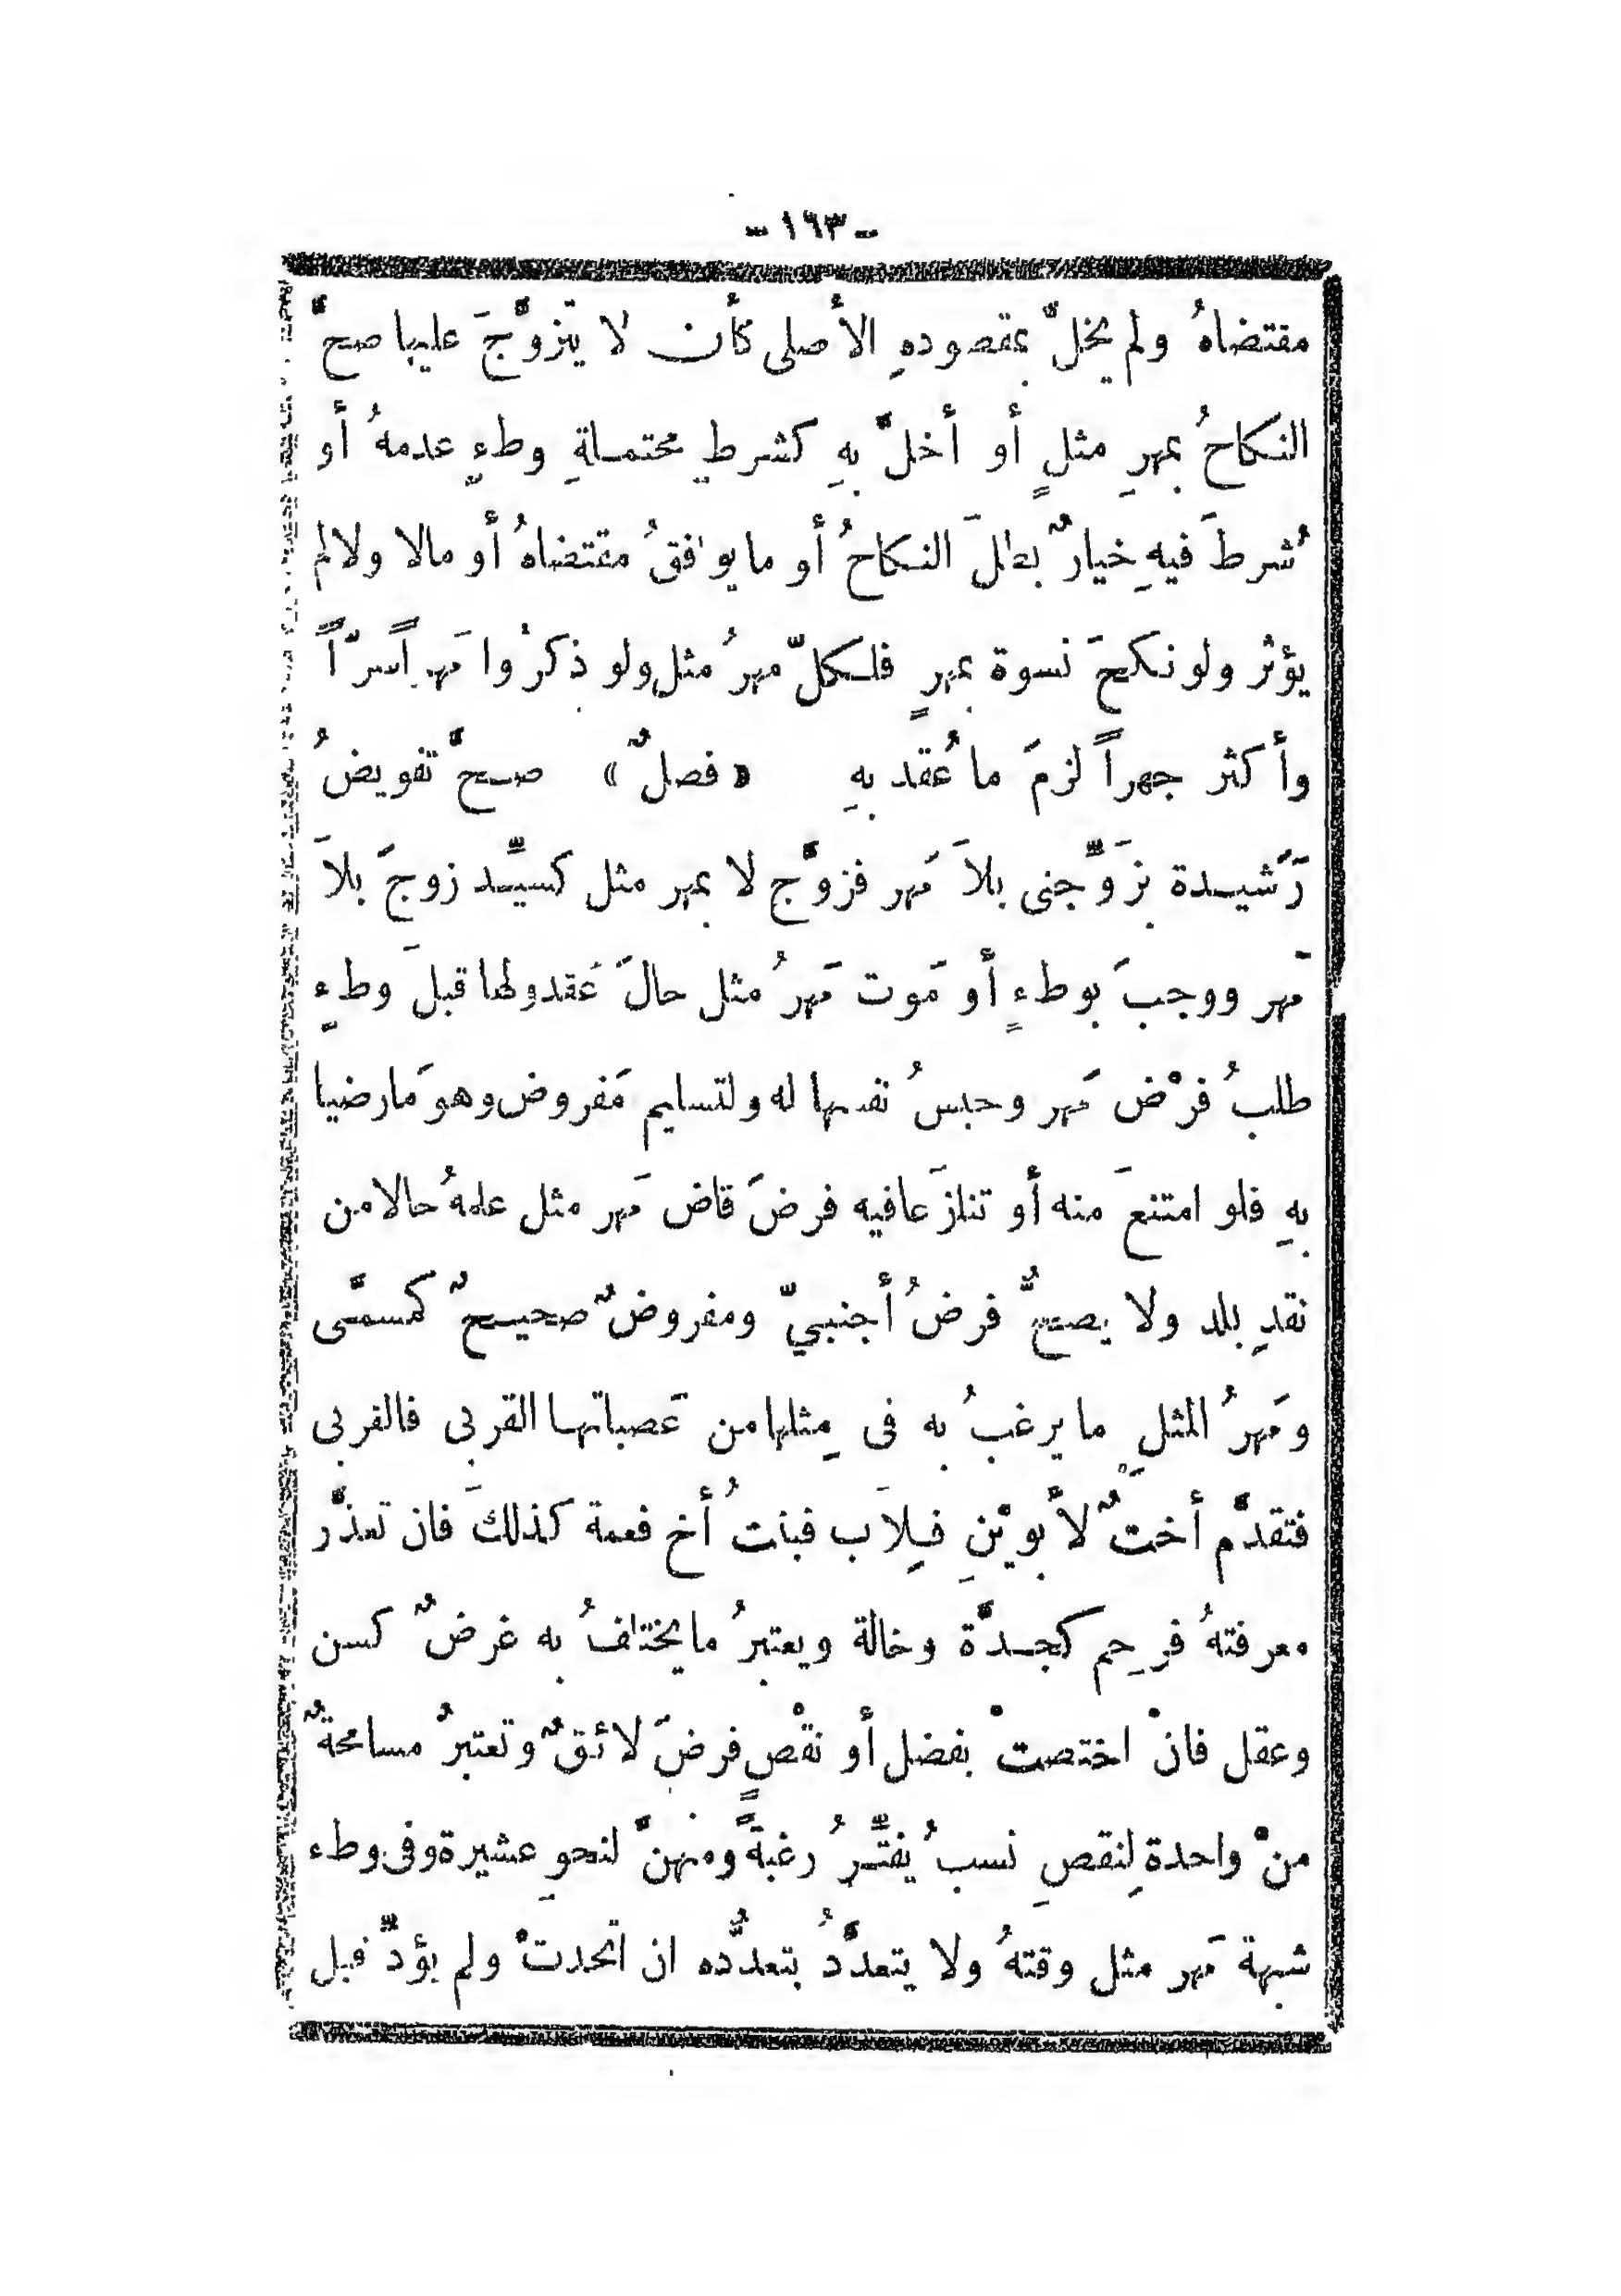 - ١٦٣ -
مقتضاهُ ولم يخلّ بمقصودهِ الأصلى كأن لا يتزوَّجَ عليها صحَّ
النكاحُ بمهرِ مثلٍ أو أخلَّ بهِ كشرطِ محتملةِ وطءٍ عدمهُ أو
شُرطَ فيهِ خيارٌ بطلَ النكاحُ أو ما يوافقُ مقتضاهُ أو مالا ولا لم
يؤثر ولو نكحَ نسوة بمهرٍ فلكلّ مهرُ مثل ولو ذكرُوا مَهراً سرّاً
وأكثر جهراً لزمَ ما عُقد بهِ « فصلٌ » صحَّ تفويضُ
رَشيدة بزَوِّجنى بلاَ مَهر فزوَّج لا بمهر مثل كسيِّد زوجَ بلاَ
مَهر ووجبَ بوطءٍ أو مَوت مَهرُ مثل حالَ عَقد ولها قبلَ وطءٍ
طلبُ فرْض مَهر وحبسُ نفسها له ولتسليم مَفروض وهوَ مَا رضيا
بهِ فلو امتنعَ منه أو تنازَعا فيه فرضَ قاض مَهر مثل علمهُ حالا من
نقدِ بلد ولا يصحُّ فرضُ أجنبيّ ومفروضٌ صحيحٌ كمسمَّى
ومَهرُ المثلِ ما يرغبُ به فى مِثلها من عَصباتها القربى فالقربى
فتقدَّم أختٌ لأَبويْنِ فلِأَب فبنتُ أخ فعمة كذلكَ فان تعذَّر
معرفتهُ فرحِم كجدَّة وخالة ويعتبرُ ما يختلفُ به غرضٌ كسن
وعقل فانْ اختصتْ بفضل أو نقْصٍ فرضَ لائقٌ وتعتبرُ مسامحةٌ
منْ واحدةِ لنقصِ نسبُ يُفتِّرُ رغبةً ومنهنَّ لنحوِ عشيرة وفى وطء
شبهة مَهر مثل وقتهُ ولا يتعدَّدُ بتعدُّده ان اتحدتْ ولم يؤدِّ قبل